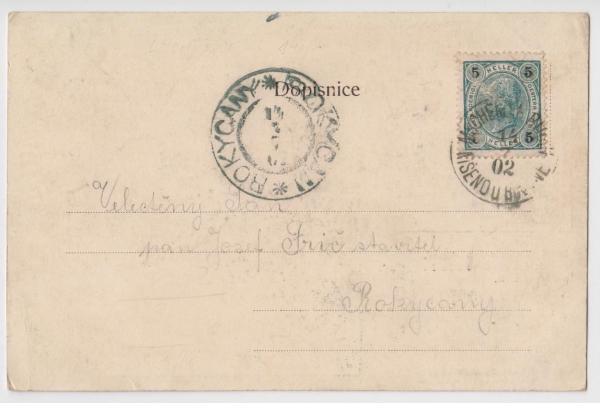 Dopisnice
5 5
HELLER
HELLER 5
ROKYCANY * ROKYCANY *
02
Velectěný Pan
pán Josef Frič stavitel
Rokycany